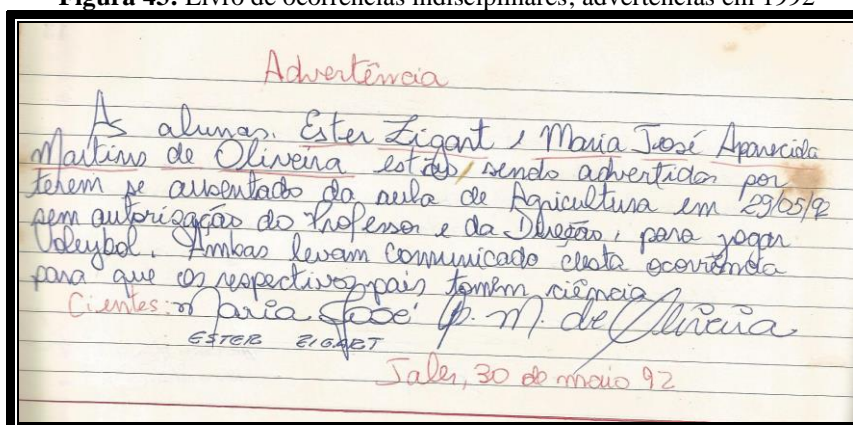 Figura 43: Livro de ocorrências indisciplinares, advertências em 1992
Advertência
As alunas. Ester Zigart e Maria José Aparecida
Martins de Oliveira estão sendo advertidas por
terem se ausentado da aula de Agricultura em 29/05/92
sem autorização do Professor e da Direção, para jogar
Voleybol. Ambas levam comunicado desta ocorrência
para que os respectivos pais tomem ciência
Cientes: Maria José A. M. de Oliveira
ESTER ZIGART
Jales, 30 de maio 92